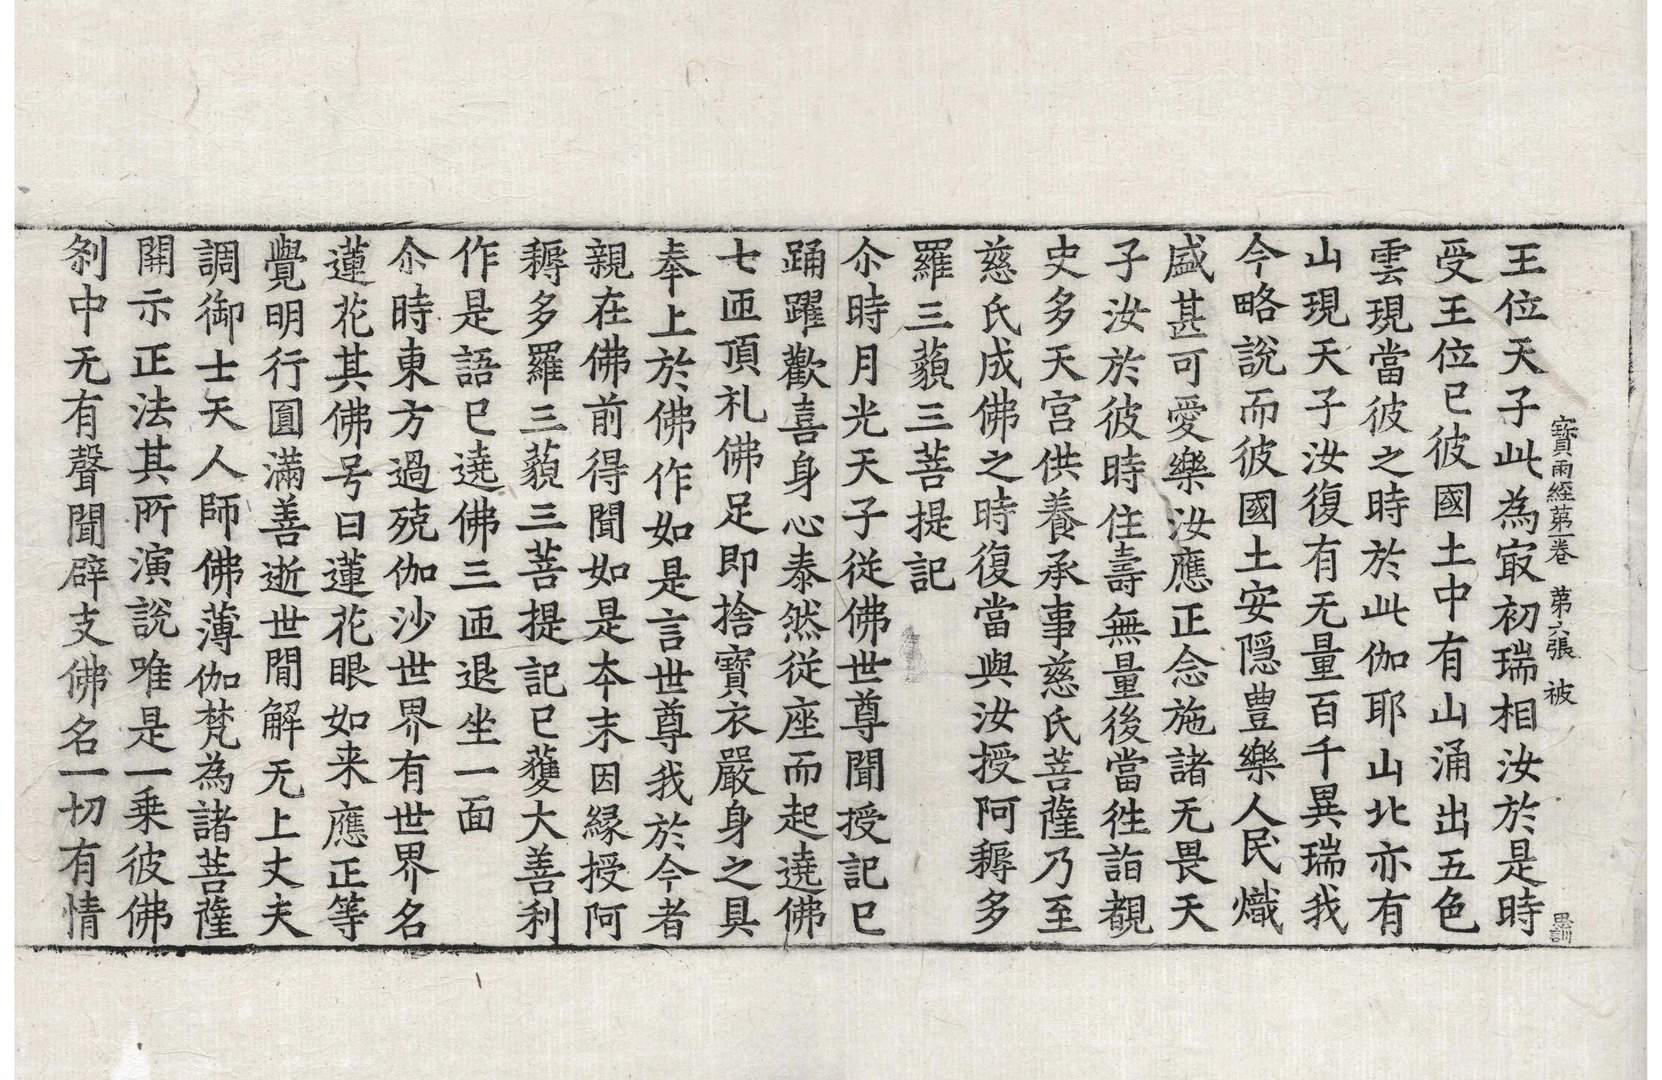 寶雨經第一卷 第六張 被
王位天子此為㝡初瑞相汝於是時
受王位已彼國土中有山涌出五色
雲現當彼之時於此伽耶山北亦有
山現天子汝復有无量百千異瑞我
今略說而彼國土安隱豊樂人民熾
盛甚可愛樂汝應正念施諸无畏天
子汝於彼時住壽無量後當徃詣覩
史多天宮供養承事慈氏菩薩乃至
慈氏成佛之時復當與汝授阿耨多
羅三藐三菩提記
尒時月光天子從佛世尊聞授記已
踊躍歡喜身心泰然從座而起遶佛
七匝頂礼佛足即捨寶衣嚴身之具
奉上於佛作如是言世尊我於今者
親在佛前得聞如是夲末因縁授阿
耨多羅三藐三菩提記已獲大善利
作是語已遶佛三匝退坐一面
尒時東方過殑伽沙世界有世界名
蓮花其佛号曰蓮花眼如来應正等
覺明行圓滿善逝世間解无上丈夫
調御士天人師佛薄伽梵為諸菩薩
開示正法其所演說唯是一乗彼佛
刹中无有聲聞辟支佛名一切有情